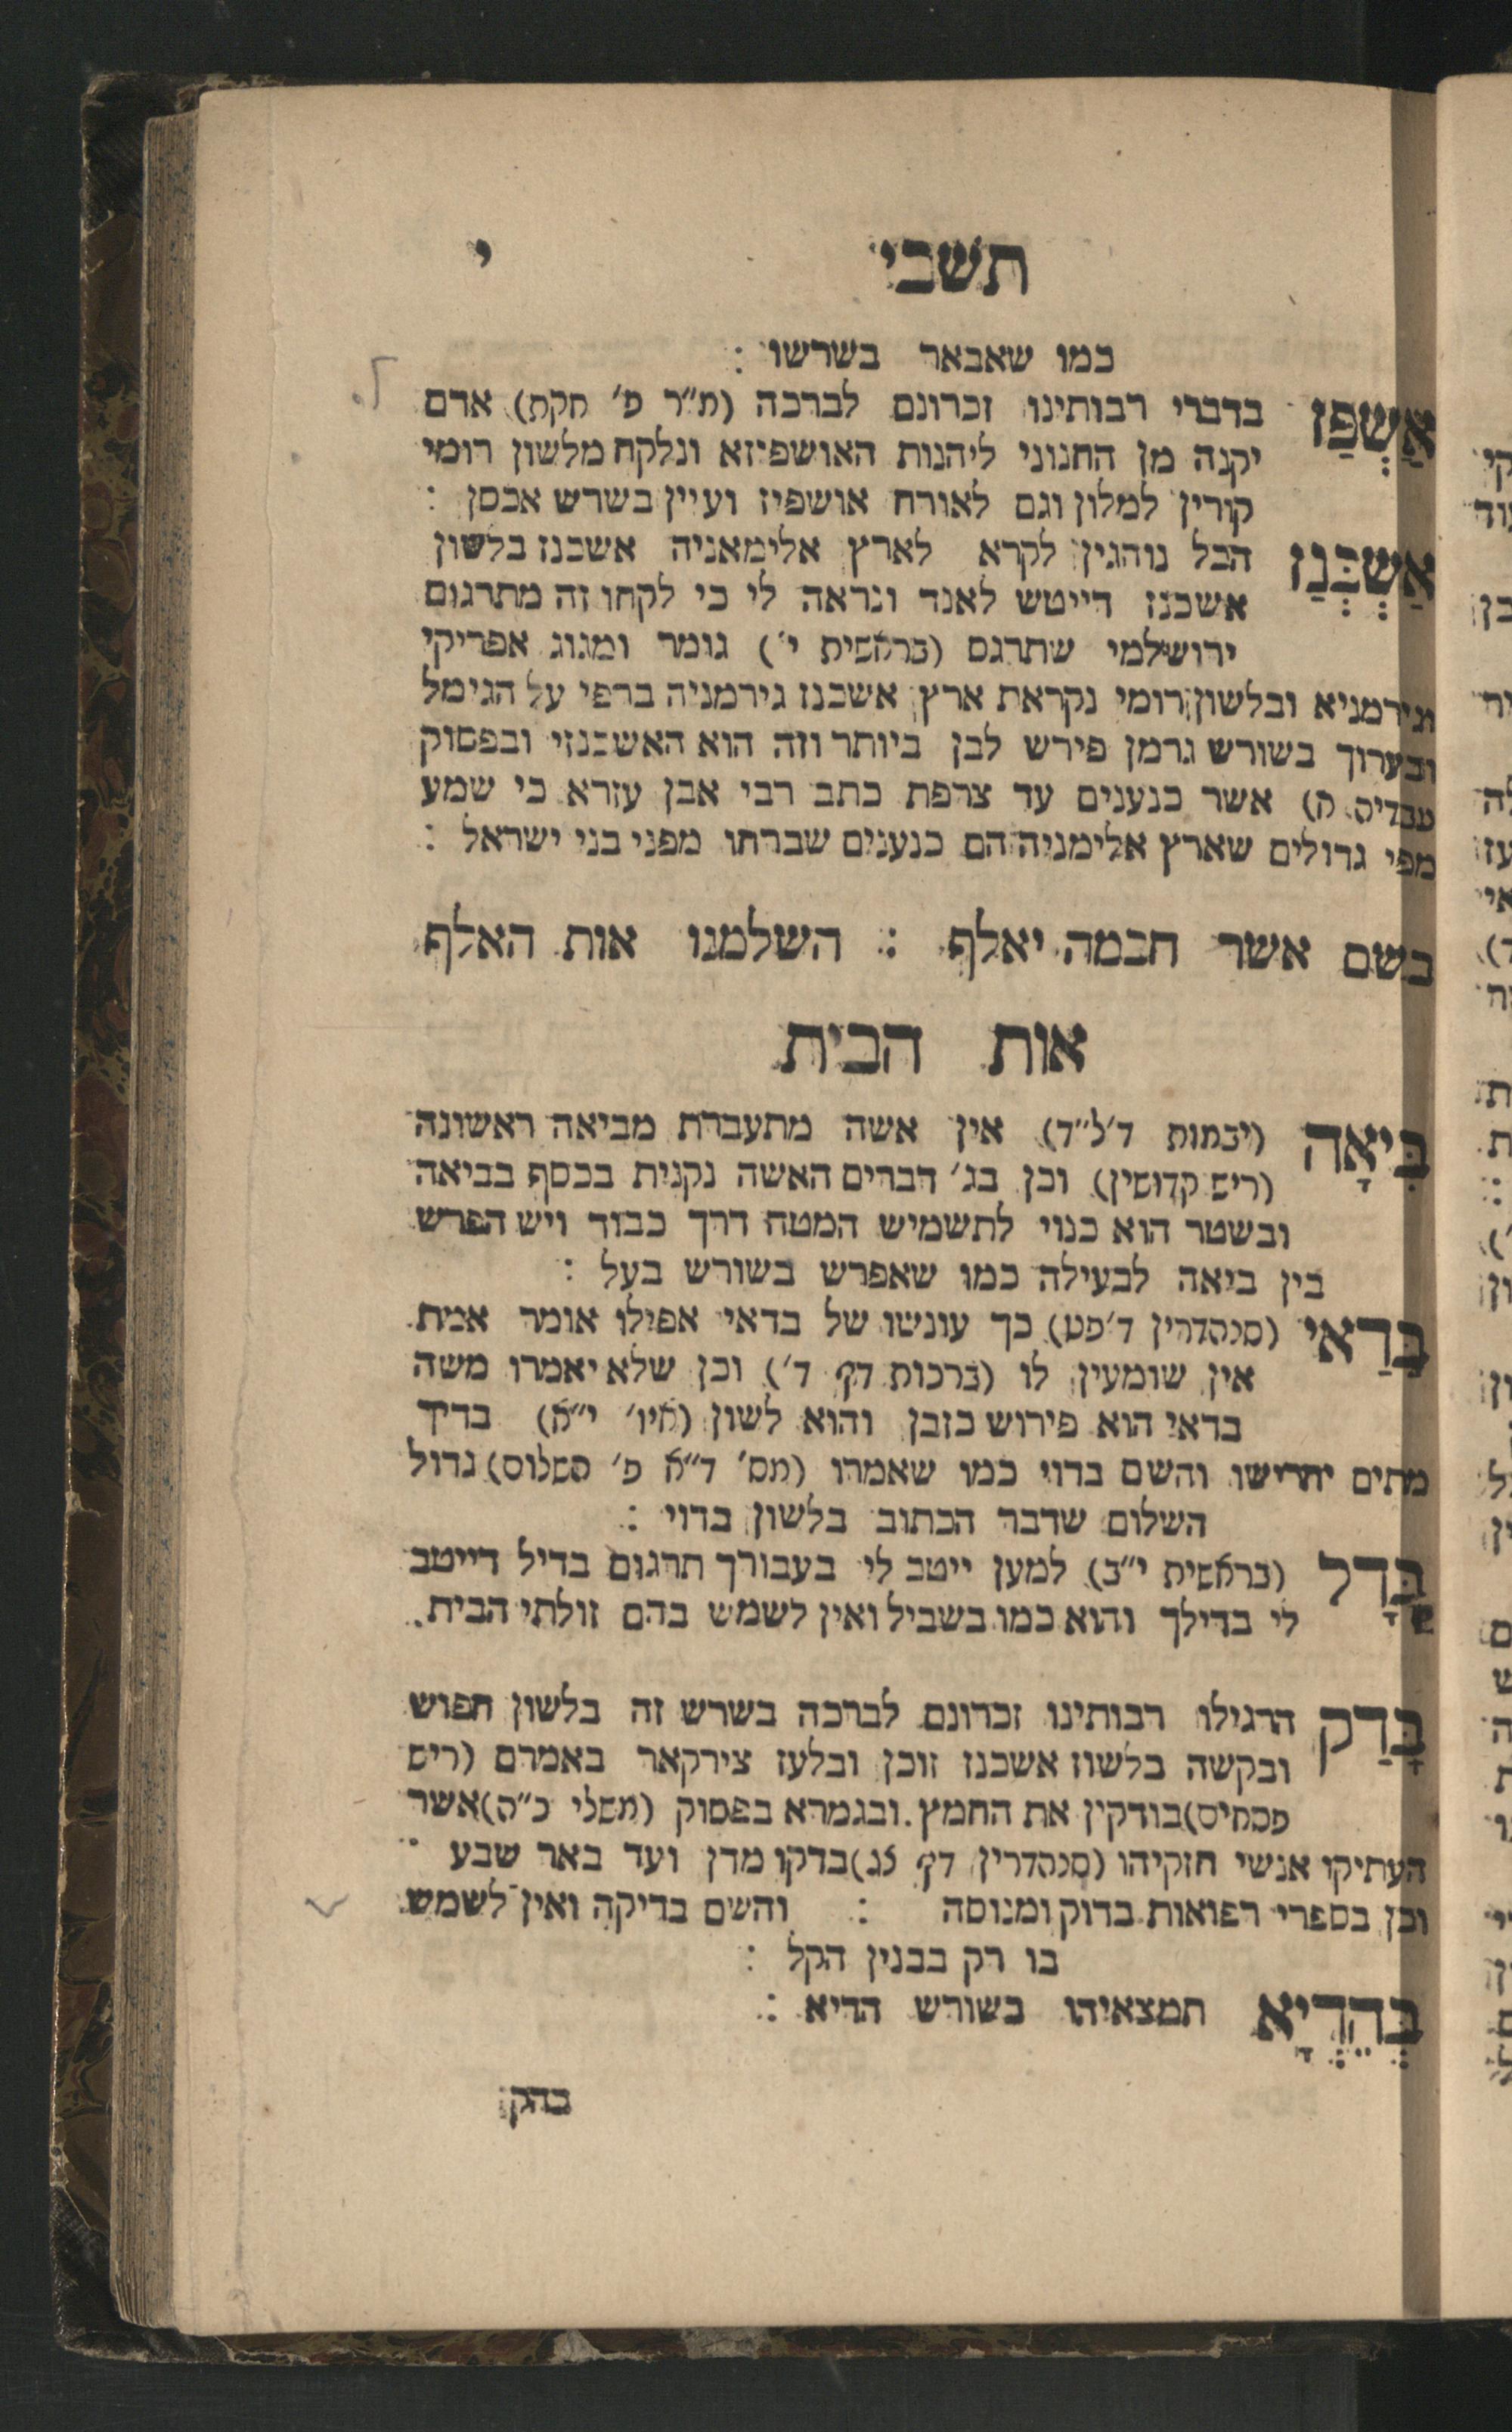 תשבי י
כמו שאבאר בשרשו :
אַשְׁפַּז בדברי רבותינו זכרונם לברכה (מ״ר פ׳ חקת) אדם
יקנה מן החנוני ליהנות האושפיזא ונלקח מלשון רומי
קורין למלון וגם לאורח אושפיז ועיין בשרש אכסן :
אַשְׁכְּנַז הכל נוהגין לקרא לארץ אלימאניה אשכנז בלשון
אשכנז דייטש לאנד ונראה לי כי לקחו זה מתרגום
ירושלמי שתרגם (בראשית י׳) גומר ומגוג אפריקי
וגירמניא ובלשון רומי נקראת ארץ אשכנז גירמניה ברפי על הגימל
ובערוך בשורש גרמן פירש לבן ביותר וזה הוא האשכנזי ובפסוק
עבדיה ה) אשר כנענים עד צרפת כתב רבי אבן עזרא כי שמע
מפי גדולים שארץ אלימניה הם כנענים שברחו מפני בני ישראל :
בשם אשר חכמה יאלף : השלמנו אות האלף
אות הבית
בִּיאָה (יבמות ד׳ל״ד) אין אשה מתעברת מביאה ראשונה
(ריש קדושין) וכן בג׳ דברים האשה נקנית בכסף בביאה
ובשטר הוא כנוי לתשמיש המטה דרך כבוד ויש הפרש
בין ביאה לבעילה כמו שאפרש בשורש בעל :
בַּדַאי (סנהדרין ד׳פט) כך עונשו של בדאי אפילו אומר אמת
אין שומעין לו (ברכות דף ד׳) וכן שלא יאמרו משה
בדאי הוא פירוש כזבן והוא לשון (איו׳ י״א) בדיך
מתים יחרישו והשם בדוי כמו שאמרו (מס׳ ד״א פ׳ השלום) גדול
השלום שדבר הכתוב בלשון בדוי :
בָּדָל (בראשית י״ב) למען ייטב לי בעבורך תרגום בדיל דייטב
לי בדילך והוא כמו בשביל ואין לשמש בהם זולתי הבית.
בָּדַק הרגילו רבותינו זכרונם לברכה בשרש זה בלשון חפוש
ובקשה בלשון אשכנז זוכן ובלעז צירקאר באמרם (ריש
פסחים)בודקין את החמץ. ובגמרא בפסוק (משלי כ״ה)אשר
העתיקו אנשי חזקיהו (סנהדרין דף צג)בדקו מדן ועד באר שבע :
וכן בספרי רפואות בדוק ומנוסה : והשם בדיקה ואין לשמש
בו רק בבנין הקל :
בְּהֵדְיָא תמצאיהו בשורש הדיא :
בהק